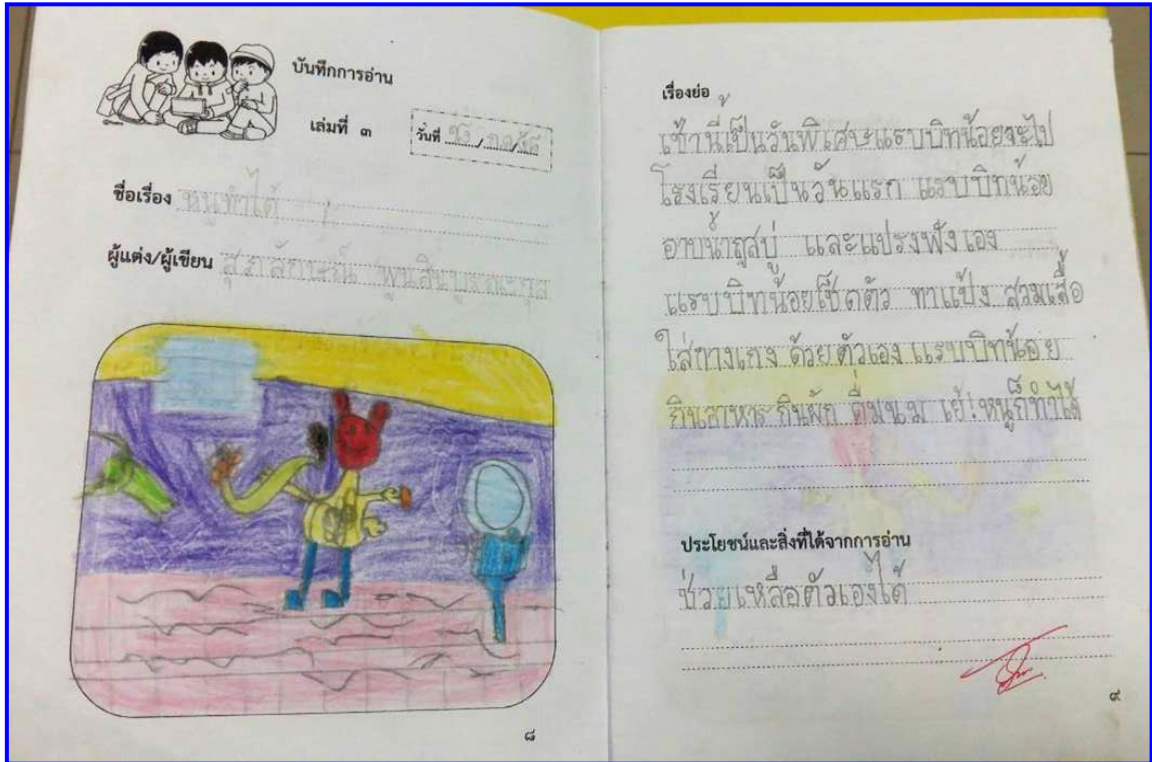 บันทึกการอ่าน
เล่มที่ ๓
วันที่
ชื่อเรื่อง หนูทำได้
ผู้แต่ง/ผู้เขียน สุภลักษณ์ พูนสินบูรณะกุล
๘
เรื่องย่อ
เช้านี้เป็นวันพิเศษแรบบิทน้อยจะไป
โรงเรียนเป็นวันแรก แรบบิทน้อย
อาบน้ำถูสบู่ และแปรงฟังเอง
แรบบิทน้อยเช็ดตัว ทาแป้ง สวมเสื้อ
ใส่กางเกง ด้วยตัวเอง แรบบิทน้อย
กินอาหาร กินผัก ดื่มนม เย้!หนูก็ทำได้
ประโยชน์และสิ่งที่ได้จากการอ่าน
ช่วยเหลือตัวเองได้
๙